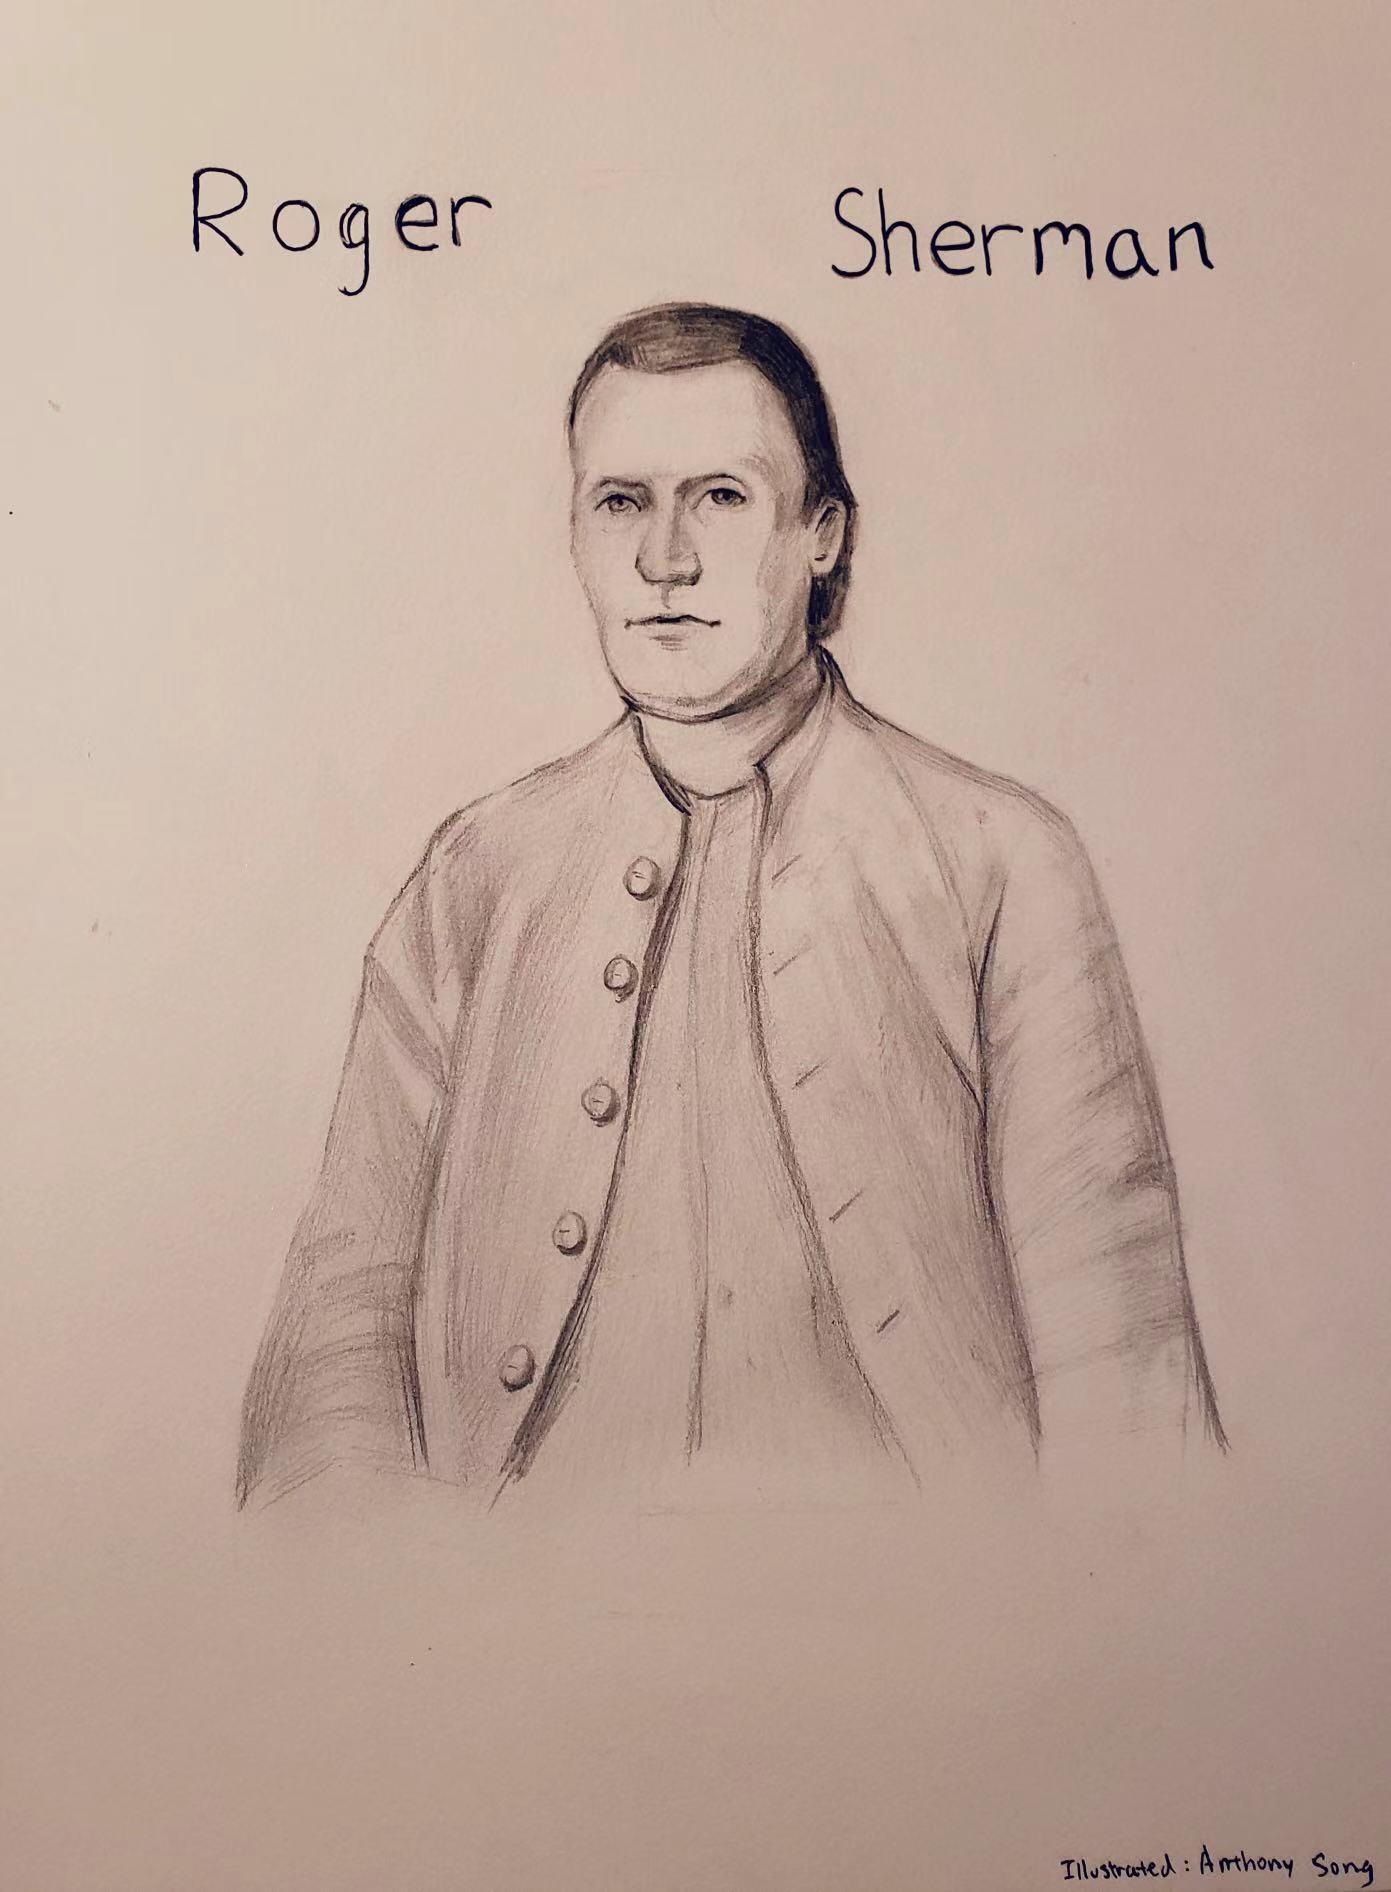 Roger Sherman
Illustrated: Anthony Song